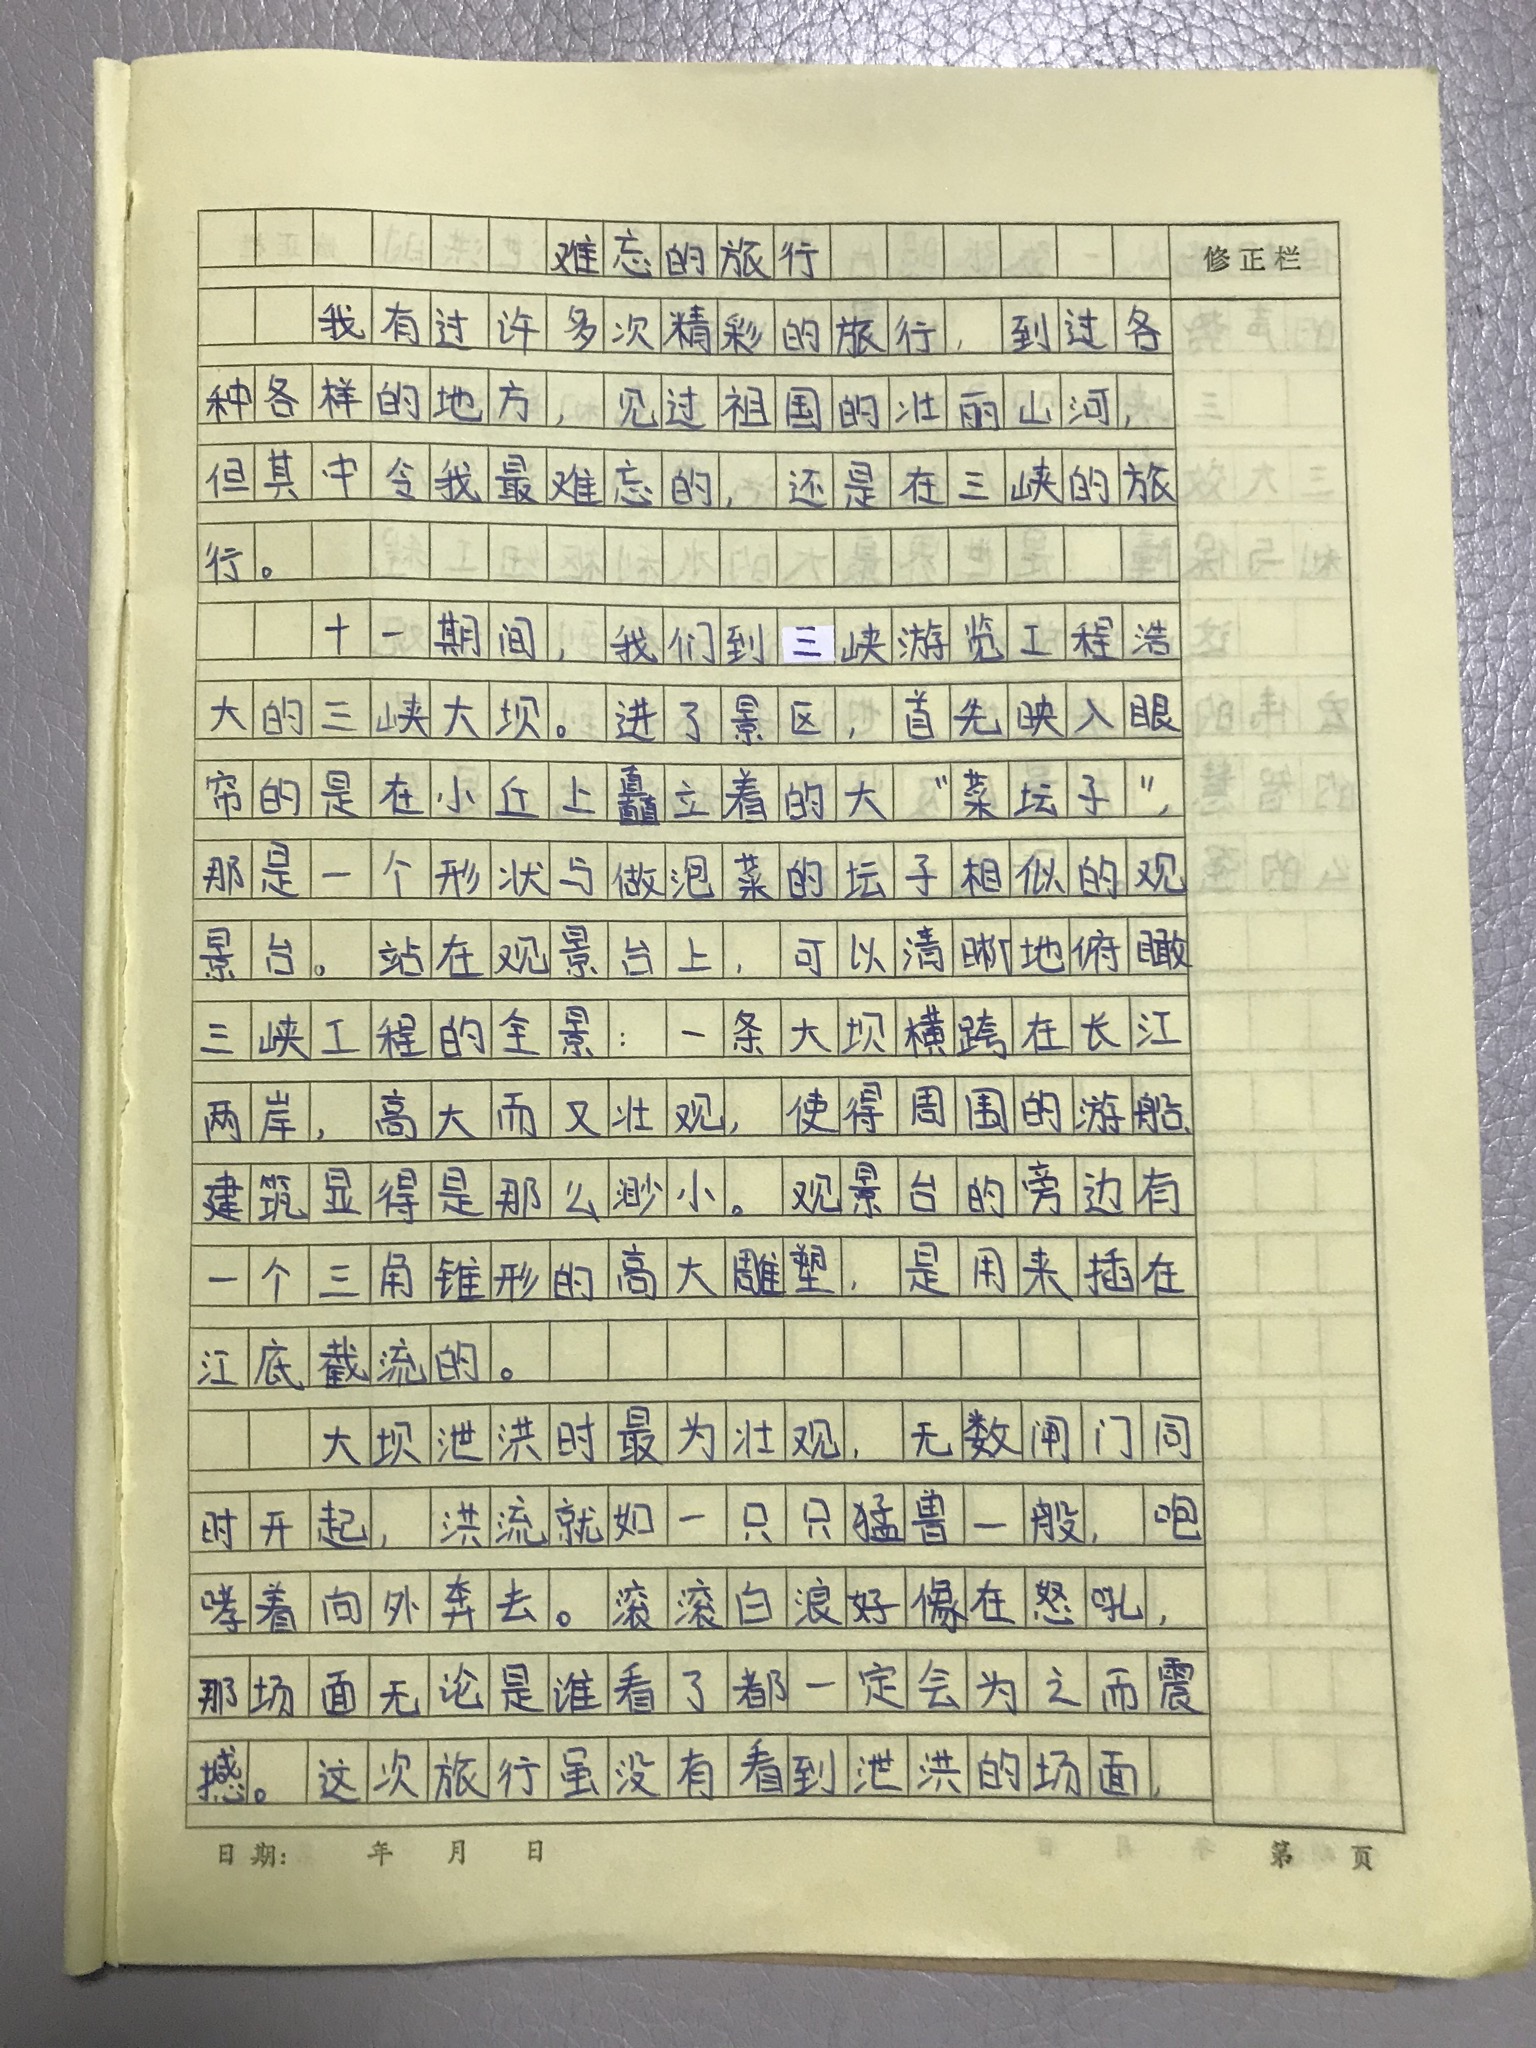 难忘的旅行
修正栏
我有过许多次精彩的旅行，到过各
种各样的地方，见过祖国的壮丽山河，
但其中令我最难忘的，还是在三峡的旅
行。
十一期间，我们到三峡游览工程浩
大的三峡大坝。进了景区，首先映入眼
帘的是在小丘上矗立着的大“菜坛子”，
那是一个形状与做泡菜的坛子相似的观
景台。站在观景台上，可以清晰地俯瞰
三峡工程的全景：一条大坝横跨在长江
两岸，高大而又壮观，使得周围的游船、
建筑显得是那么渺小。观景台的旁边有
一个三角锥形的高大雕塑，是用来插在
江底截流的。
大坝泄洪时最为壮观，无数闸门同
时开起，洪流就如一只只猛兽一般，咆
哮着向外奔去。滚滚白浪好像在怒吼，
那场面无论是谁看了都一定会为之而震
撼。这次旅行虽没有看到泄洪的场面，
日期： 年 月 日 第 页